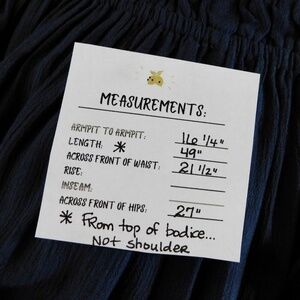 MEASUREMENTS:
ARMPIT TO ARMPIT: 16 1/4"
LENGTH: * 49"
ACROSS FRONT OF WAIST: 21 1/2"
RISE:
INSEAM:
ACROSS FRONT OF HIPS: 27"
* From top of bodice...
Not shoulder